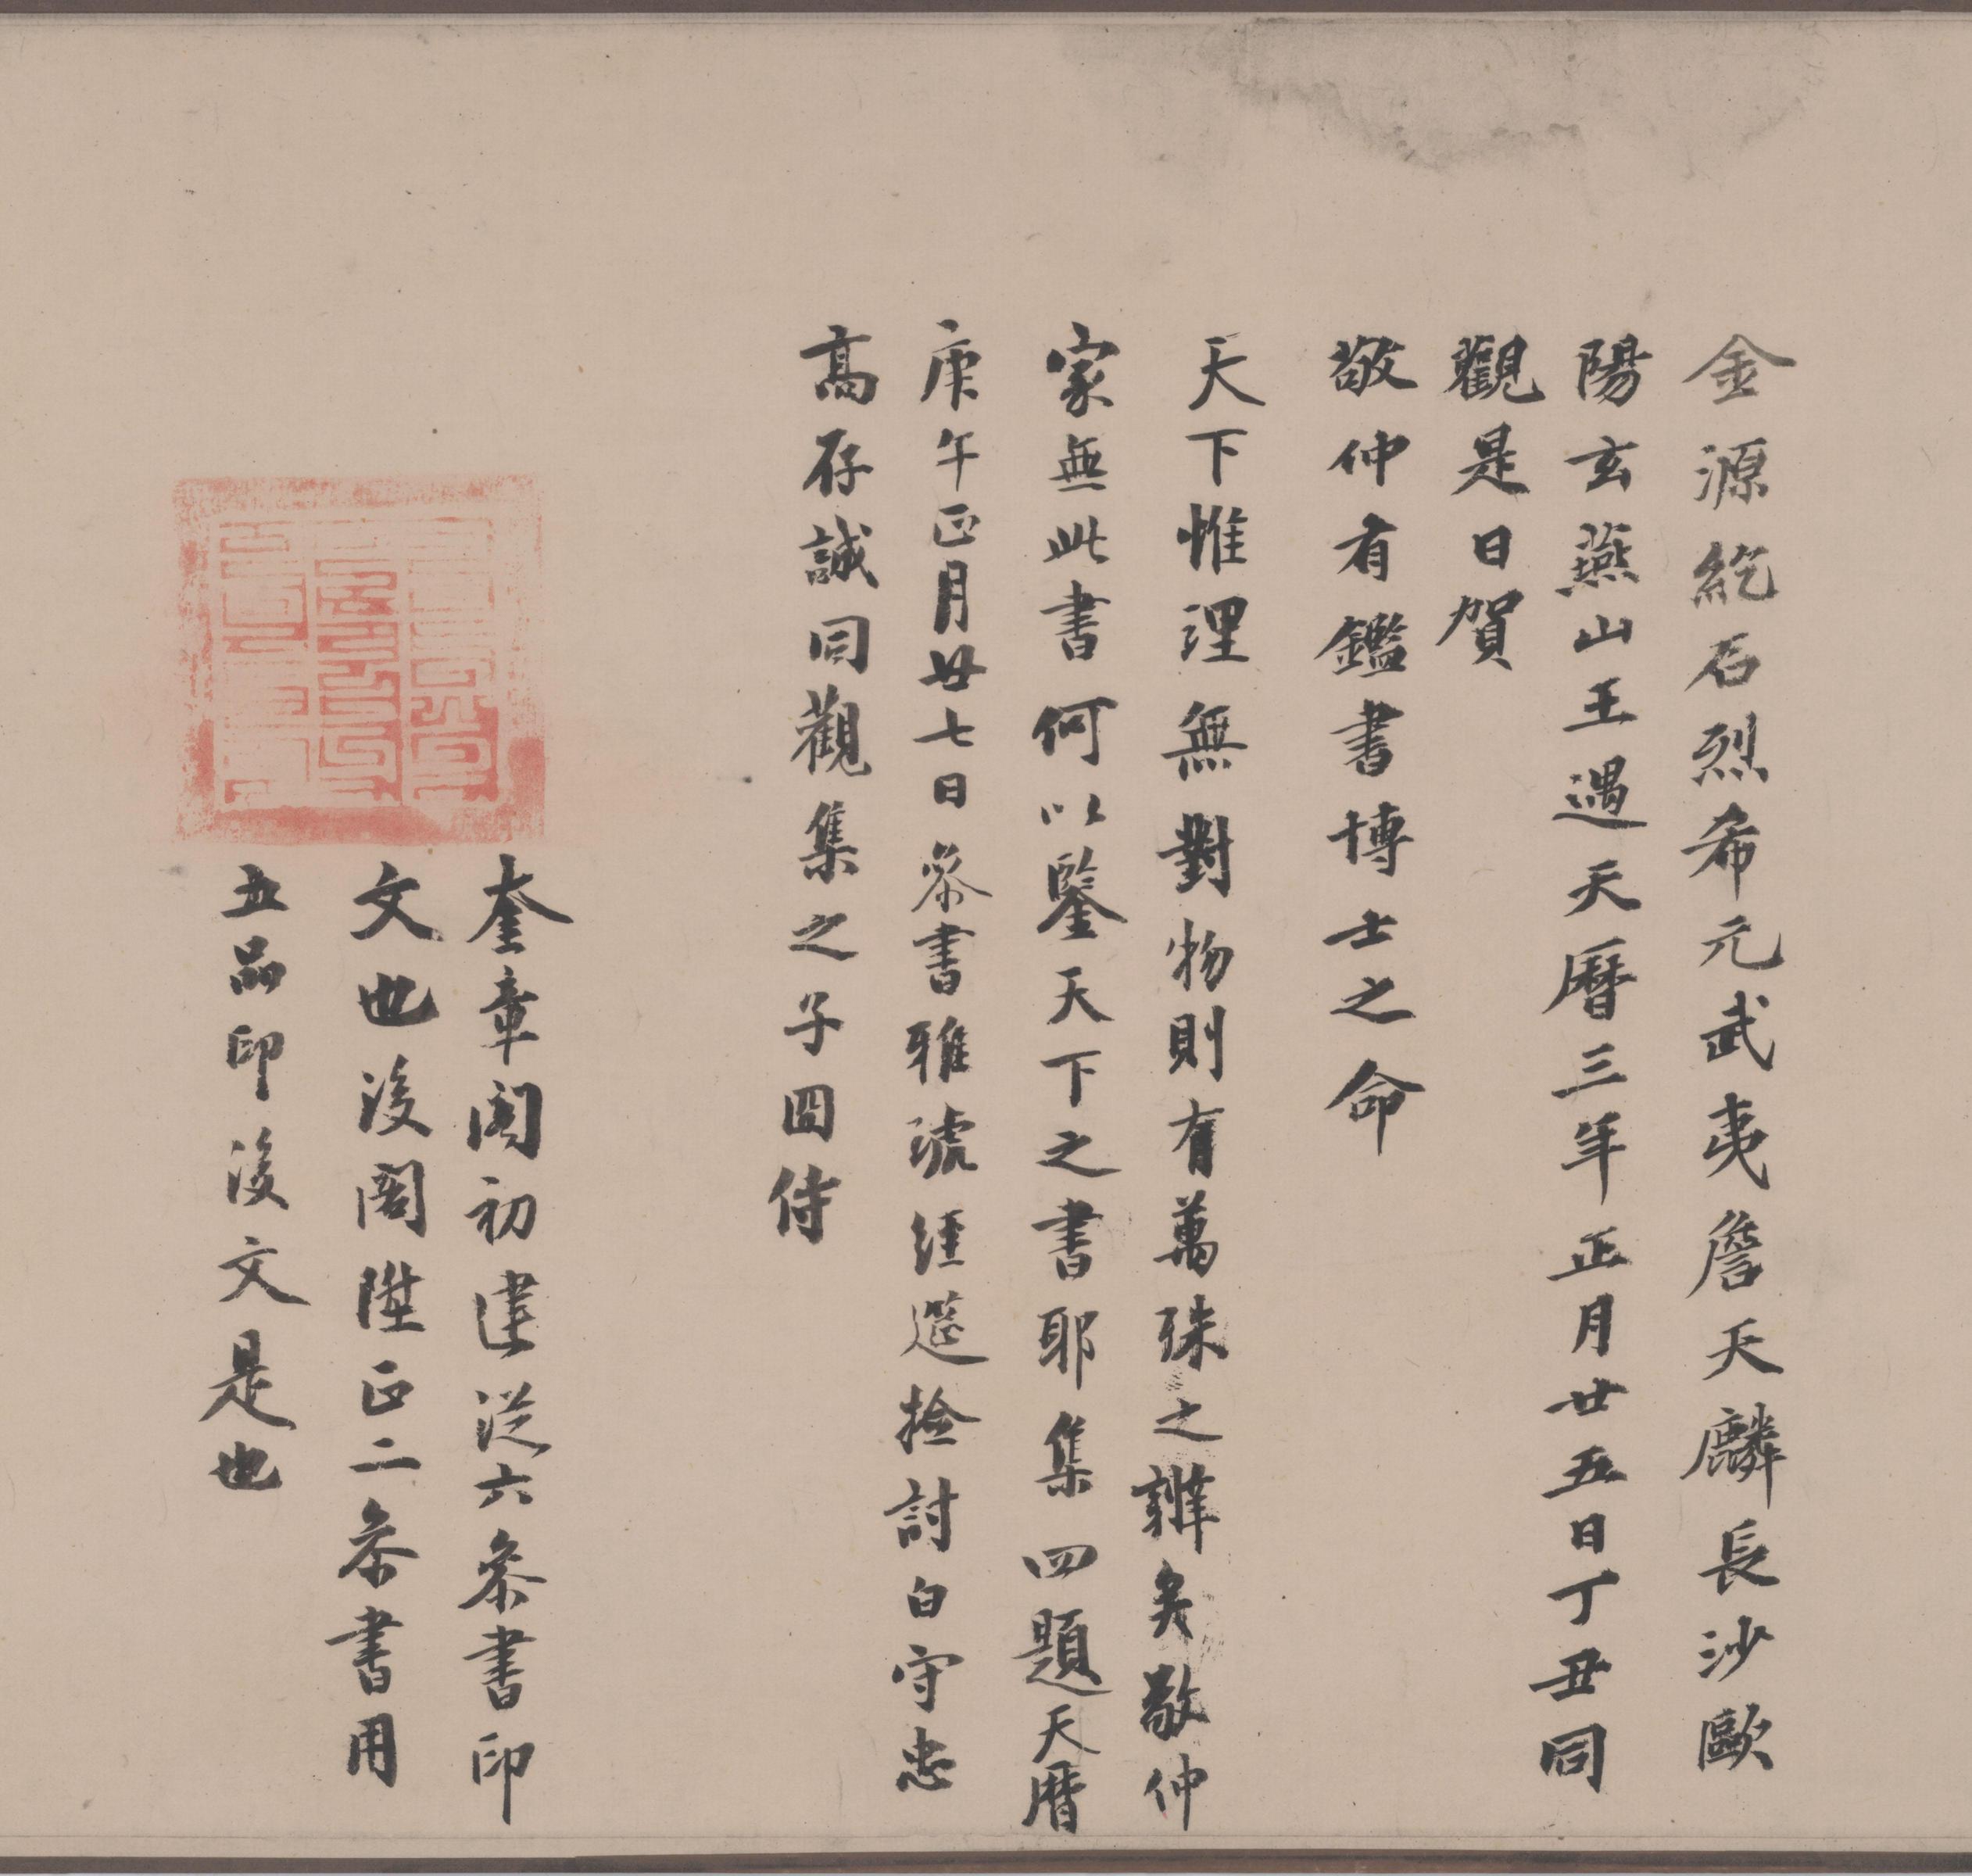 金源紇石烈希元武夷詹天麟長沙歐
陽玄燕山王遇天曆三年正月廿五日丁丑同
觀是日賀
敬仲有鑑書博士之命
天下惟理無對物則有萬殊之辨矣敬仲
家無此書何以鑒天下之書耶集四題天曆
庚午正月廿七日叅書雅琥經筵撿討白守忠
高存誠同觀集之子囬侍
奎章閣初建從六叅書印
文也後閣陞正二叅書用
五品印後文是也